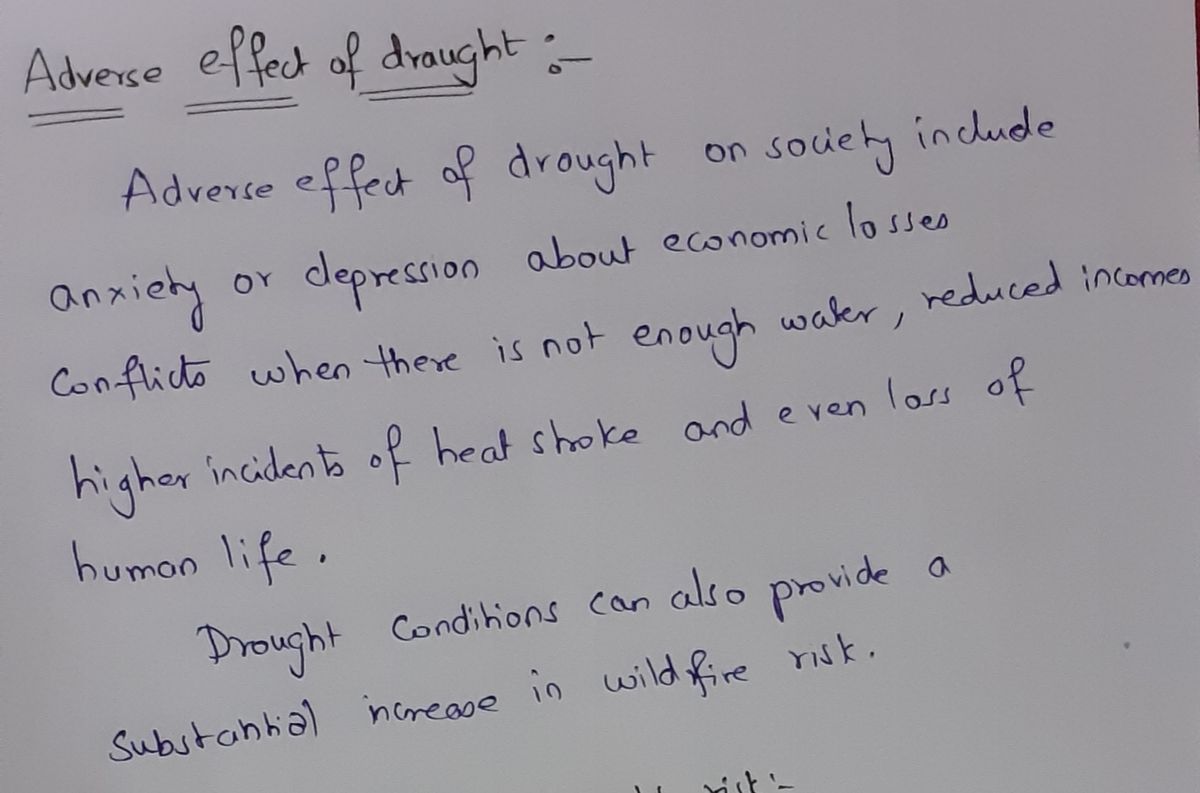 Adverse effect of draught :-
Adverse effect of drought on society include
anxiety or depression about economic losses
Conflicts when there is not enough water, reduced incomes
higher incidents of heat stroke and even loss of
human life.
Drought Conditions can also provide a
Substantial increase in wild fire risk.
risk :-